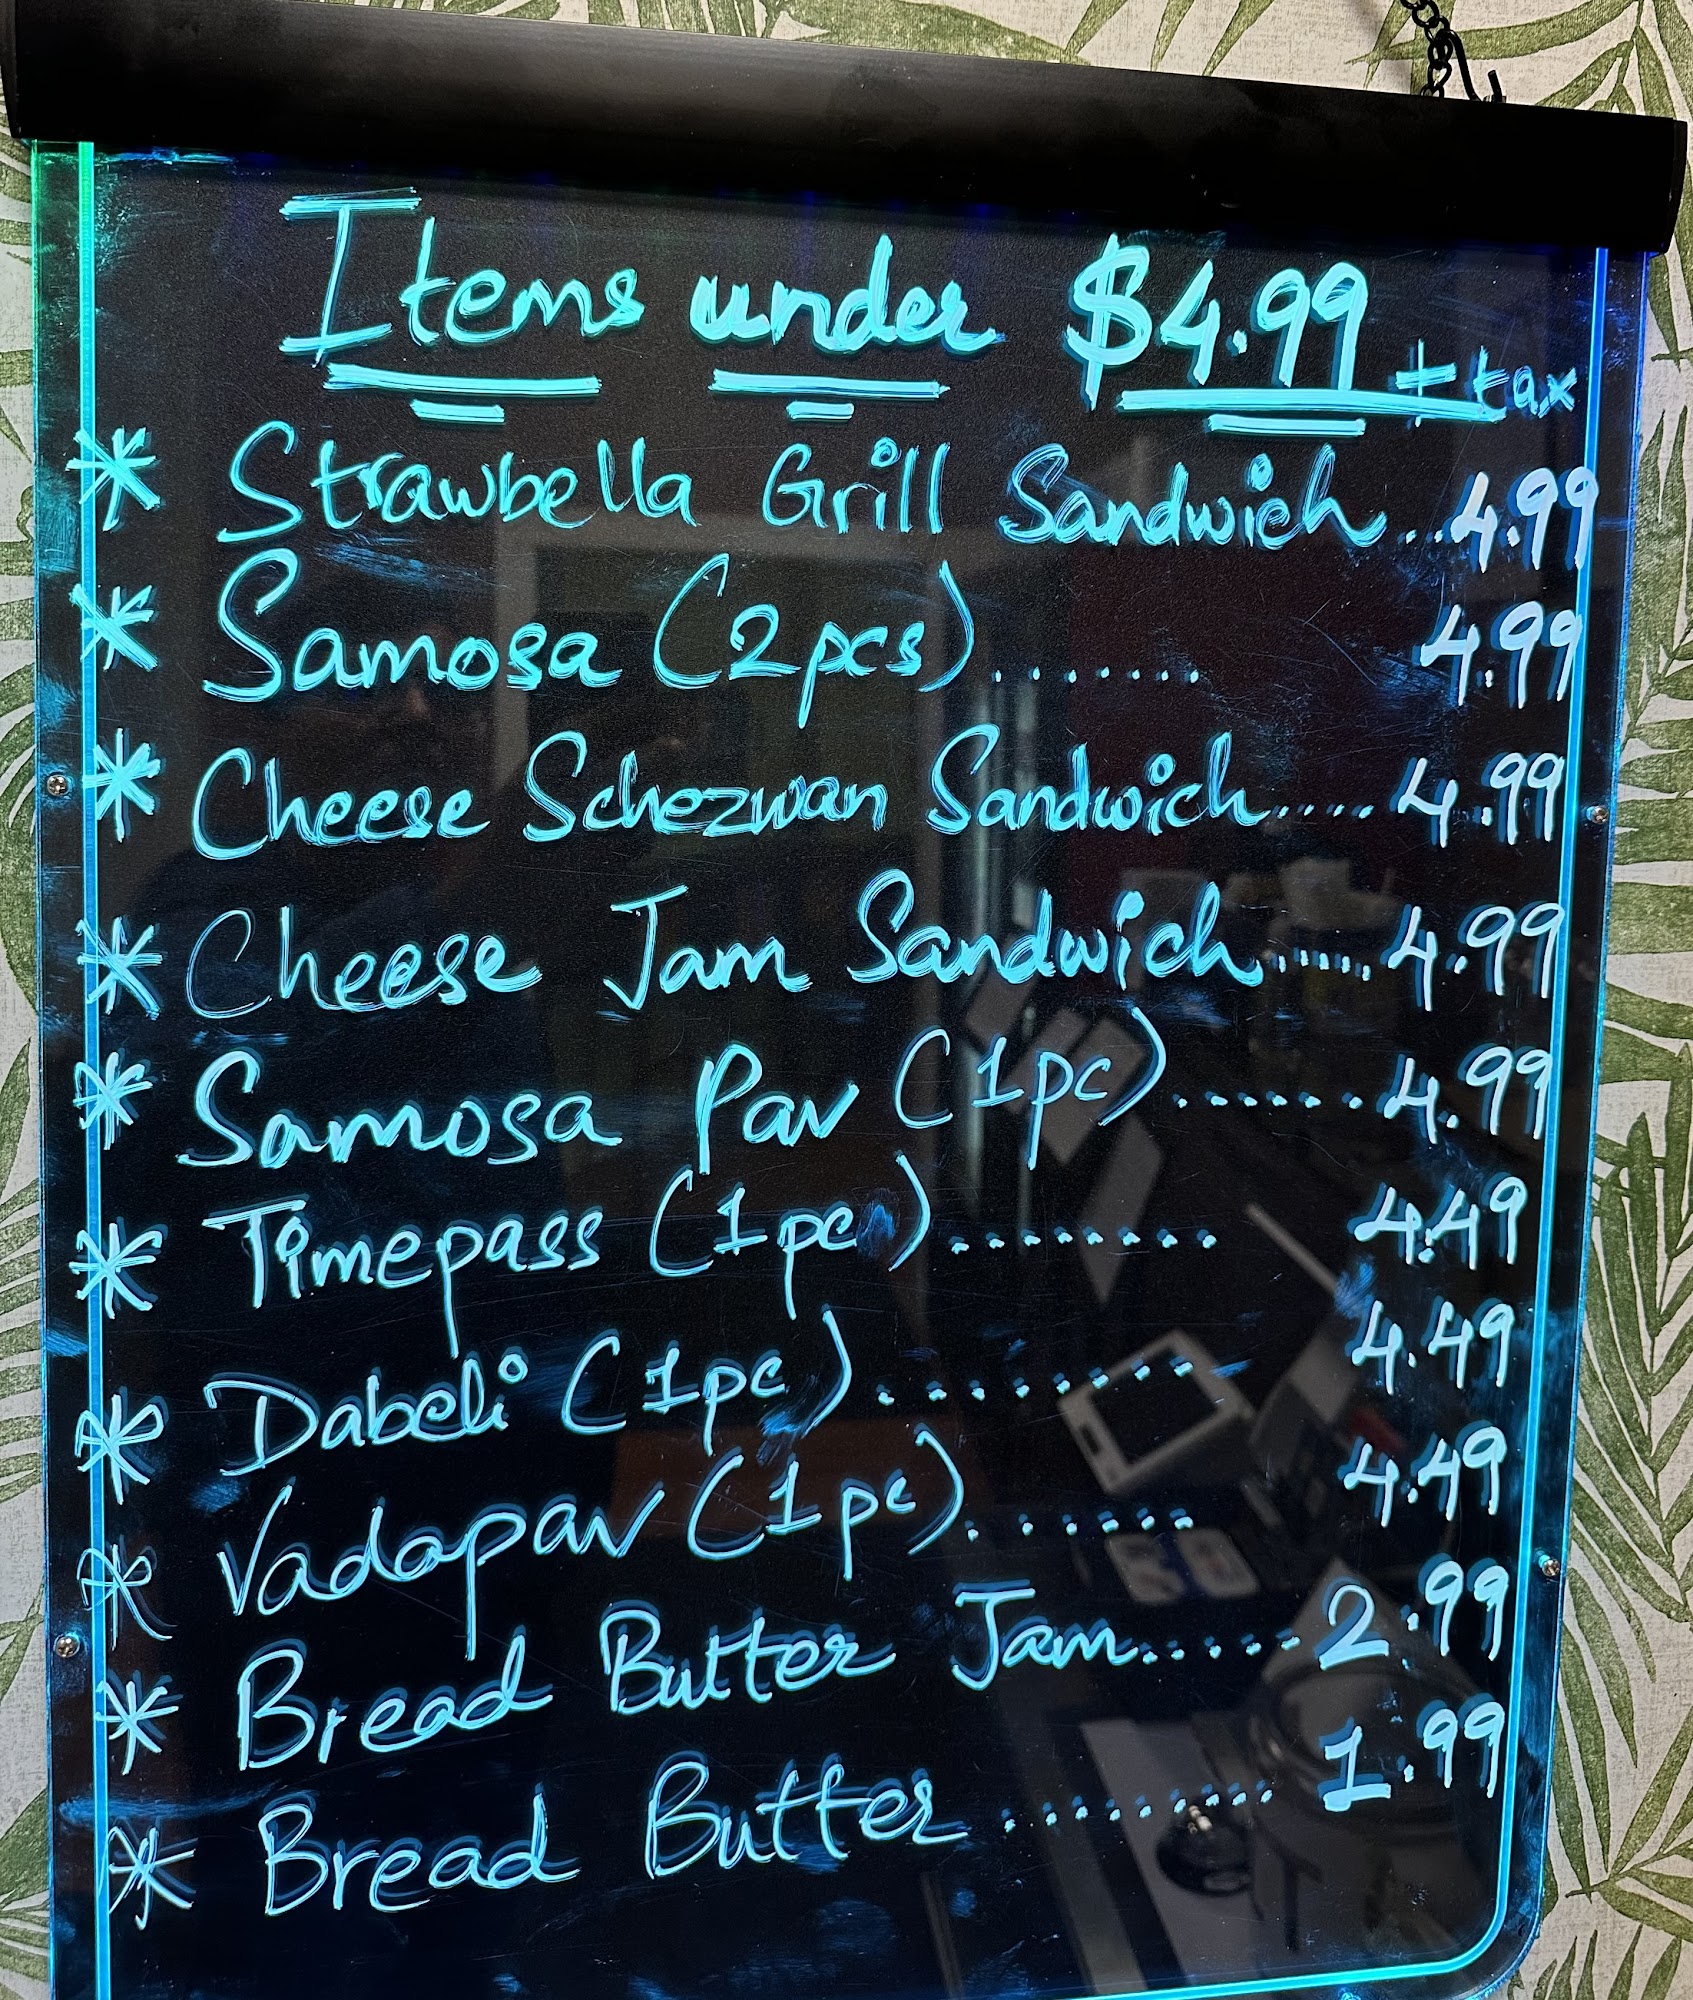 Items under $4.99 + tax
* Strawbella Grill Sandwich...4.99
* Samosa (2pcs)....... 4.99
* Cheese Schezwan Sandwich..... 4.99
* Cheese Jam Sandwich...... 4.99
* Samosa Pav (1pc)....... 4.99
* Timepass (1pc)........ 4.49
* Dabeli (1pc)......... 4.49
* Vadapav (1pc)...... 4.49
* Bread Butter Jam...... 2.99
* Bread Butter .......... 1.99